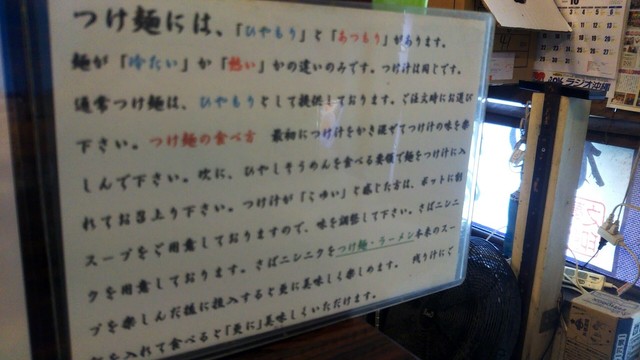 つけ麺には、「ひやもり」と「あつもり」があります。
麺が「冷たい」か「熱い」かの違いのみです。つけ汁は同じです。
通常つけ麺は、ひやもりとして提供しております。ご注文時にお選び
下さい。つけ麺の食べ方　最初につけ汁をかき混ぜてつけ汁の味を楽
しんで下さい。次に、ひやしそうめんを食べる要領で麺をつけ汁に入
れてお召上り下さい。つけ汁が「こゆい」と感じた方は、ポットに割
スープをご用意しておりますので、味を調整して下さい。さばニシニ
クを用意しております。さばニシニクをつけ麺・ラーメン本来のスー
プを楽しんだ後に投入すると更に美味しく楽しめます。　残り汁にご
を入れて食べると「更に」美味しくいただけます。
ラジオ沖縄